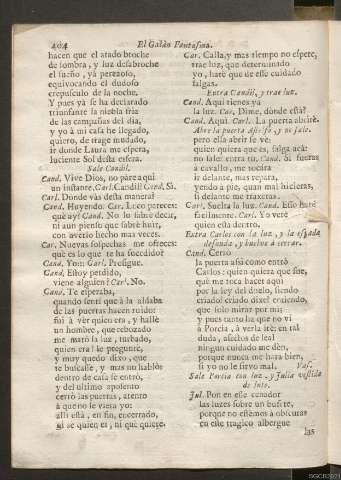 404
El Galàn Fantasma.
hacen que el atado broche
de sombra, y luz desabroche
el sueño, yà perezoso,
equivocando el dudoso
crepusculo de la noche.
Y pues yà se ha declarado
triunfante la niebla fria
de las campañas del dia,
y yo à mi casa he llegado,
quiero, de trage mudado,
ir donde Laura me espera,
luciente Sol desta esfera.
Sale Candil.
Cand. Vive Dios, no parezca aqui
un instante. Carl. Candil! Cand. Sì.
Carl. Donde vàs desta manera?
Cand. Huyendo. Car. Loco pareces:
què ay? Cand. No lo sabrè decir,
ni aun pienso que sabrè huir,
con averlo hecho mas veces.
Car. Nuevas sospechas me ofreces:
què es lo que te ha sucedido?
Cand. Yo:: Carl. Prosigue.
Cand. Estoy perdido,
viene alguien? Car. No.
Cand. Te esperaba,
quando sentì que à la aldaba
de las puertas hacen ruido:
fui à vèr quien era, y hallè
un hombre, que rebozado
me matò la luz, turbado,
quien era? le preguntè,
y muy quedo dixo, que
te buscasse, y mas no hablò:
dentro de casa se entrò,
y del ultimo aposento
cerrò las puertas, atento
à que no le viesse yo:
alli està, en fin, encerrado,
ni sè quien es, ni què quiere.
Car. Calla, y mas tiempo no espere,
trae luz, que determinado
yo, harè que de esse cuidado
salgas.
Entra Candil, y trae luz.
Cand. Aqui tienes ya
la luz. Car. Dime, dònde està?
Cand. Aqui. Carl. La puerta abrirè.
Abre la puerta Astolfo, y no sale.
pero ella abrir se vè:
quien quiera que es, salga acà:
no sale: entra tù, Cand. Si fueras
à cavallo, me tocàra
ir delante, mas repara,
yendo à pie, quan mal hicieras,
si delante me traxeras.
Carl. Suelta la luz. Cand. Esso harè
facilmente. Carl. Yo verè
quien està dentro.
Entra Carlos con la luz, y la espada
desnuda, y buelve à cerrar.
Cand. Cerrò
la puerta assi como entrò
Carlos: quien quiera que fue,
què me toca hacer aqui
por la ley del duelo, siendo
criado? criado dixe? entiendo,
que solo mirar por mi;
y pues tanto ha que no vì
à Porcia, à verla irè: en tal
duda, afectos de leal
ningun cuidado me dèn,
porque nunca me harà bien,
si yo no le sirvo mal. Vase.
Sale Porcia con luz, y Julia vestida
de luto.
Jul. Pon en esse cenador
las luzes sobre un bufete,
porque no estèmos à obscuras
en este tragico albergue
las